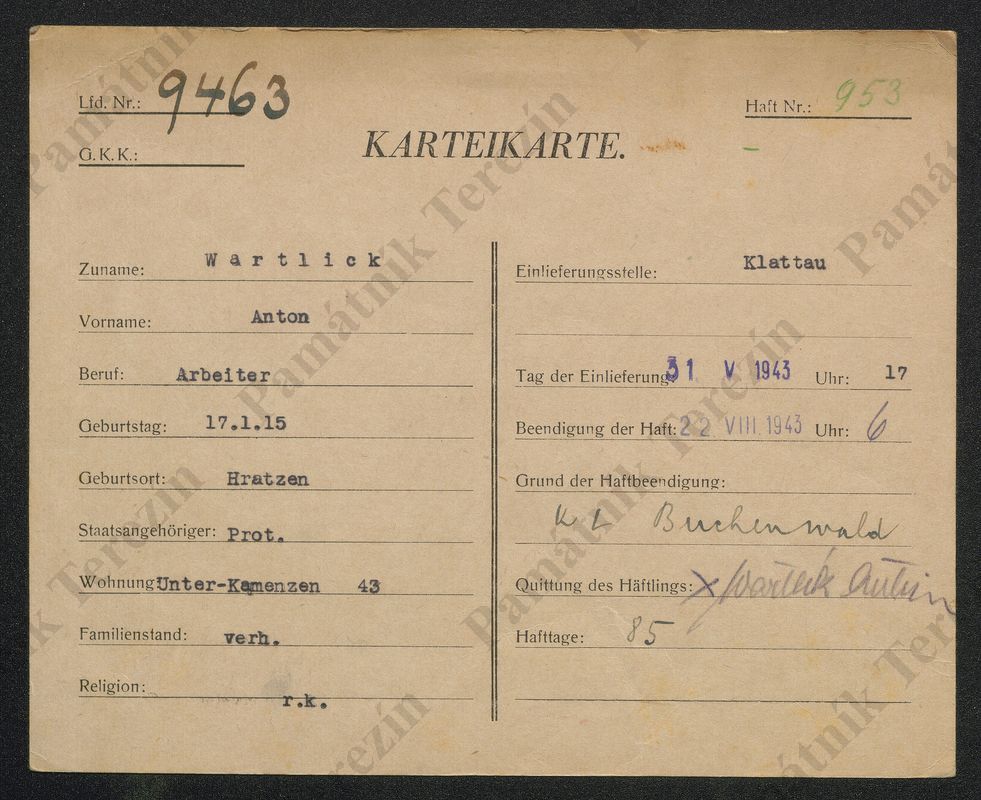 Lfd. Nr.: 9463
Haft Nr.: 953
G.K.K.:
KARTEIKARTE.
Zuname: Wartlick
Vorname: Anton
Beruf: Arbeiter
Geburtstag: 17.1.15
Geburtsort: Hratzen
Staatsangehöriger: Prot.
Wohnung Unter-Kamenzen 43
Familienstand: verh.
Religion: r.k.
Einlieferungsstelle: Klattau
Tag der Einlieferung: 31 V 1943 Uhr: 17
Beendigung der Haft: 22 VIII. 1943 Uhr: 6
Grund der Haftbeendigung:
KL Buchenwald
Quittung des Häftlings: x
Hafttage: 85
Památník Terezín
Památník Terezín
Památník Terezín
Památník Terezín
Památník Terezín